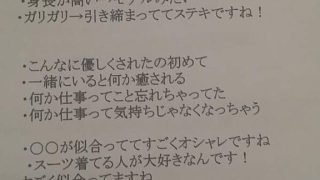 ・身長が高い→モデルみたい
・ガリガリ→引き締まっててステキですね！
・こんなに優しくされたの初めて
・一緒にいると何か癒される
・何か仕事ってこと忘れちゃってた
・何か仕事って気持ちじゃなくなっちゃう
・〇〇が似合っててすごくオシャレですね
・スーツ着てる人が大好きなんです！
似合ってますね